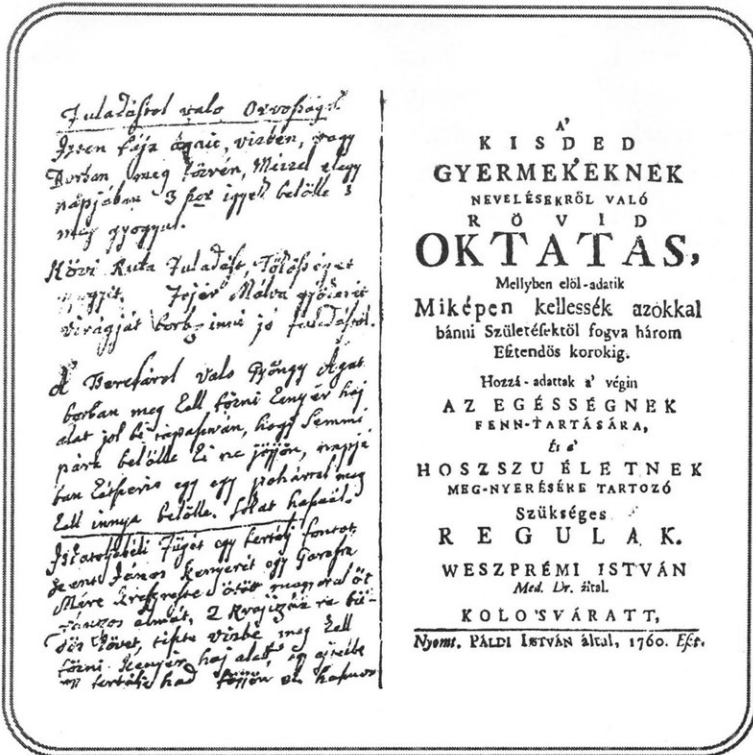 Fuladásrol valo Orvosság.
Isten fája ágait, vizben, vagy
Borban meg főzvén, Mézzel elegy
napjában 3 szor igyék belölle s
meg gyogyul.
Kövi Ruta Fuladást,
Fejér Málva gyökerit
virágját borb innia jó fuladásrol.
A valo Gyöngy Ágat
borban meg kell főzni kenyér haj
alat jol bé tapasztván, hogy semmi
pára belölle ki ne jöjjön, napjá
ban egy egy pohárral meg
kell innya belölle.
Fügét egy fontot,
Szent János kenyerit egy
öt
almát, 2 Krajczár re bü-
dös követ, tiszta vizbe meg kell
főzni kenyér haj alatt,
had főjjön
A'
KISDED
GYERMEKEKNEK
NEVELÉSEKRÖL VALÓ
RÖVID
OKTATAS,
Mellyben elöl-adatik
Miképen kellessék azokkal
bánni Születéſektöl fogva három
Eſztendös korokig.
Hozzá-adattak a' végin
AZ EGÉSSÉGNEK
FENN-TARTÁSÁRA,
És a'
HOSZSZU ÉLETNEK
MEG-NYERÉSÉRE TARTOZÓ
Szükséges
REGULAK.
WESZPRÉMI ISTVÁN
Med. Dr. által.
KOLO'SVÁRATT,
Nyomt. PÁLDI ISTVÁN által, 1760. Eſzt.